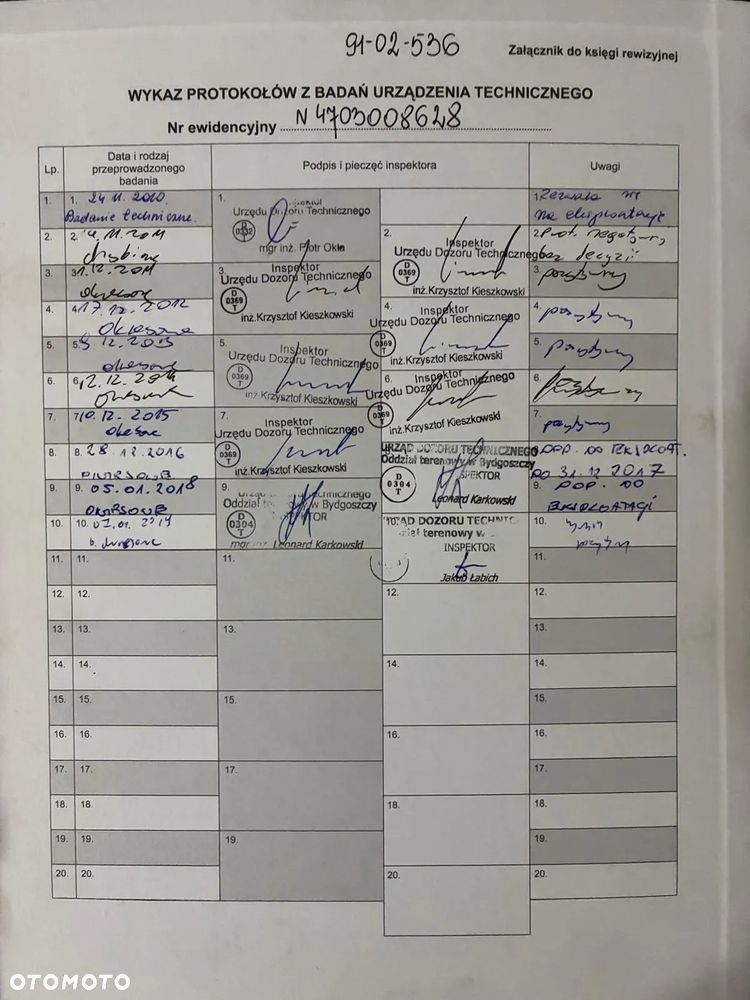 91-02-536
Załącznik do księgi rewizyjnej
WYKAZ PROTOKOŁÓW Z BADAŃ URZĄDZENIA TECHNICZNEGO
Nr ewidencyjny N 4703008628
Lp.
Data i rodzaj
przeprowadzonego
badania
Podpis i pieczęć inspektora
Uwagi
1. 1. 24 11. 2010. 1. 1.
Badanie techniczne. Urzędu Dozoru Technicznego na eksploatację
D 0332
mgr inż. Piotr Okła
2. 2. 11. 2011 2. Inspektor 2. Prot. negatywny
Urzędu Dozoru Technicznego bez decyzji
D 0369 T
inż. Krzysztof Kieszkowski
3. 3. 1. 12. 2011 3. Inspektor 3. pozytywny
okresowe Urzędu Dozoru Technicznego
D 0369 T
inż. Krzysztof Kieszkowski
4. 4. 17. 12. 2012 4. Inspektor 4. pozytywny
Okresowe Urzędu Dozoru Technicznego
D 0369 T
inż. Krzysztof Kieszkowski
5. 5. 12. 2013 5. Inspektor 5. pozytywny
okresowe Urzędu Dozoru Technicznego
D 0369 T
inż. Krzysztof Kieszkowski
6. 6. 12. 12. 2014 6. Inspektor 6. pozytywny
okresowe Urzędu Dozoru Technicznego
D 0369 T
inż. Krzysztof Kieszkowski
7. 7. 10. 12. 2015 7. Inspektor 7. pozytywny
okresowe Urzędu Dozoru Technicznego
D 0369 T
inż. Krzysztof Kieszkowski
8. 8. 28. 12. 2016 URZĄD DOZORU TECHNICZNEGO DOP. DO EKSPLOAT.
Oddział terenowy w Bydgoszczy DO 31. 12 2017
D 0304 T
Leonard Karkowski
9. 9. 05. 01. 2018 9. 9. DOP. DO
OKRESOWE Oddział w Bydgoszczy EKSPLOATACJI
D 0304 T
mgr inż. Leonard Karkowski
10. 10. 07. 01. 2019 10. URZĄD DOZORU 10.
INSPEKTOR
Jakub Łabich
11. 11. 11. 11.
12. 12. 12. 12.
13. 13. 13. 13.
14. 14. 14. 14.
15. 15. 15. 15.
16. 16. 16. 16.
17. 17. 17. 17.
18. 18. 18. 18.
19. 19. 19. 19.
20. 20. 20. 20.
OTOMOTO